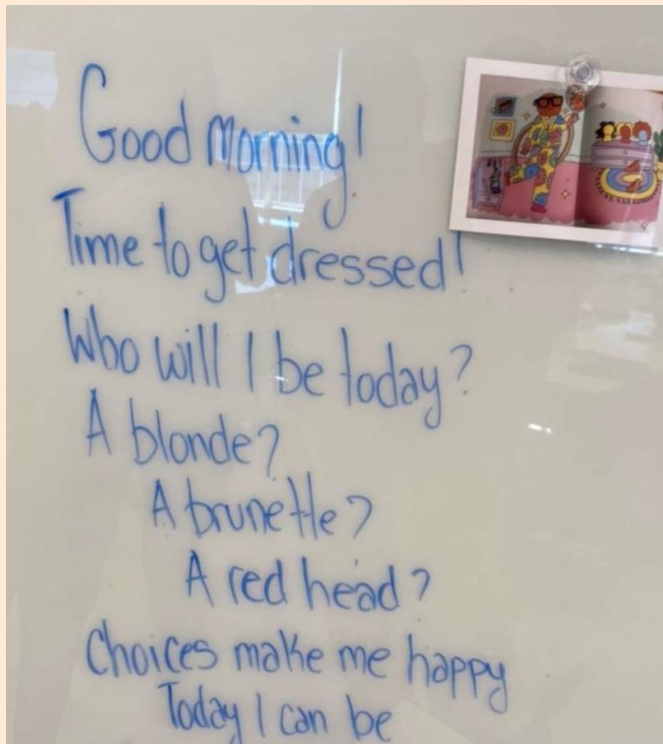 Good Morning!
Time to get dressed!
Who will I be today?
A blonde?
A brunette?
A red head?
Choices make me happy
Today I can be